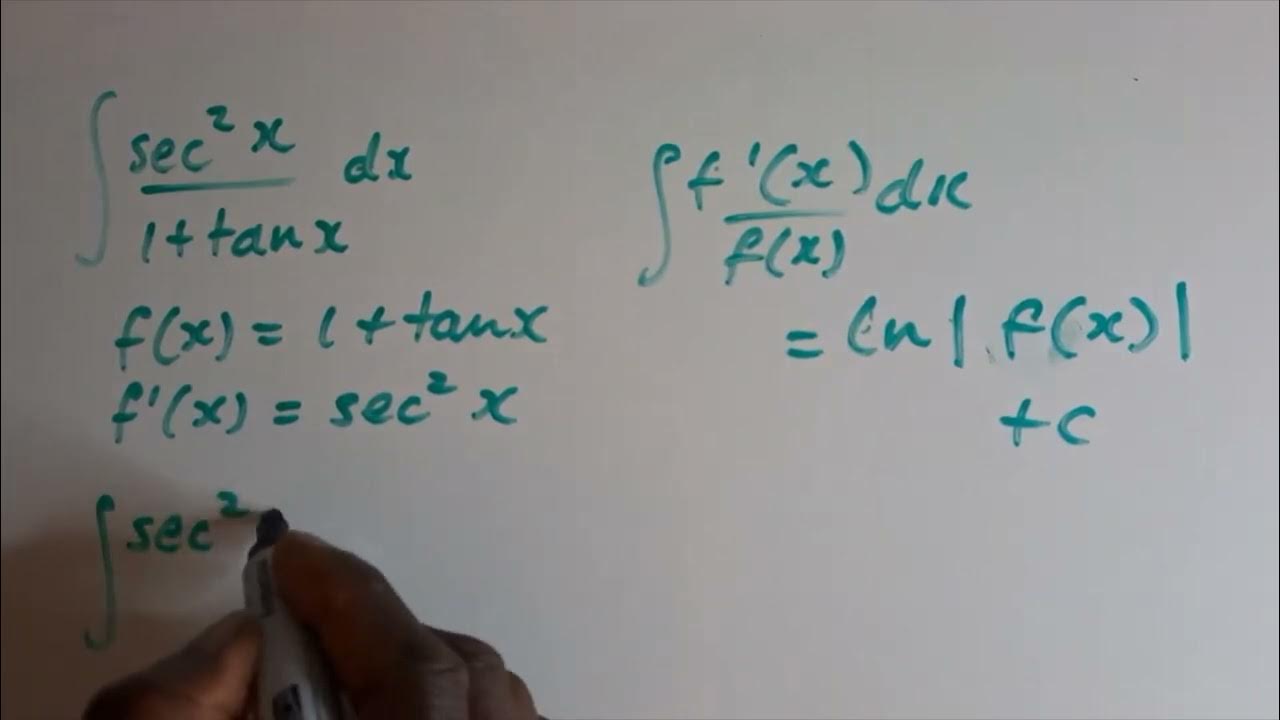 ∫ sec² x / 1 + tan x dx
f(x) = 1 + tan x
f'(x) = sec² x
∫ sec²
∫ f'(x) / f(x) dx
= ln | f(x) |
+ c